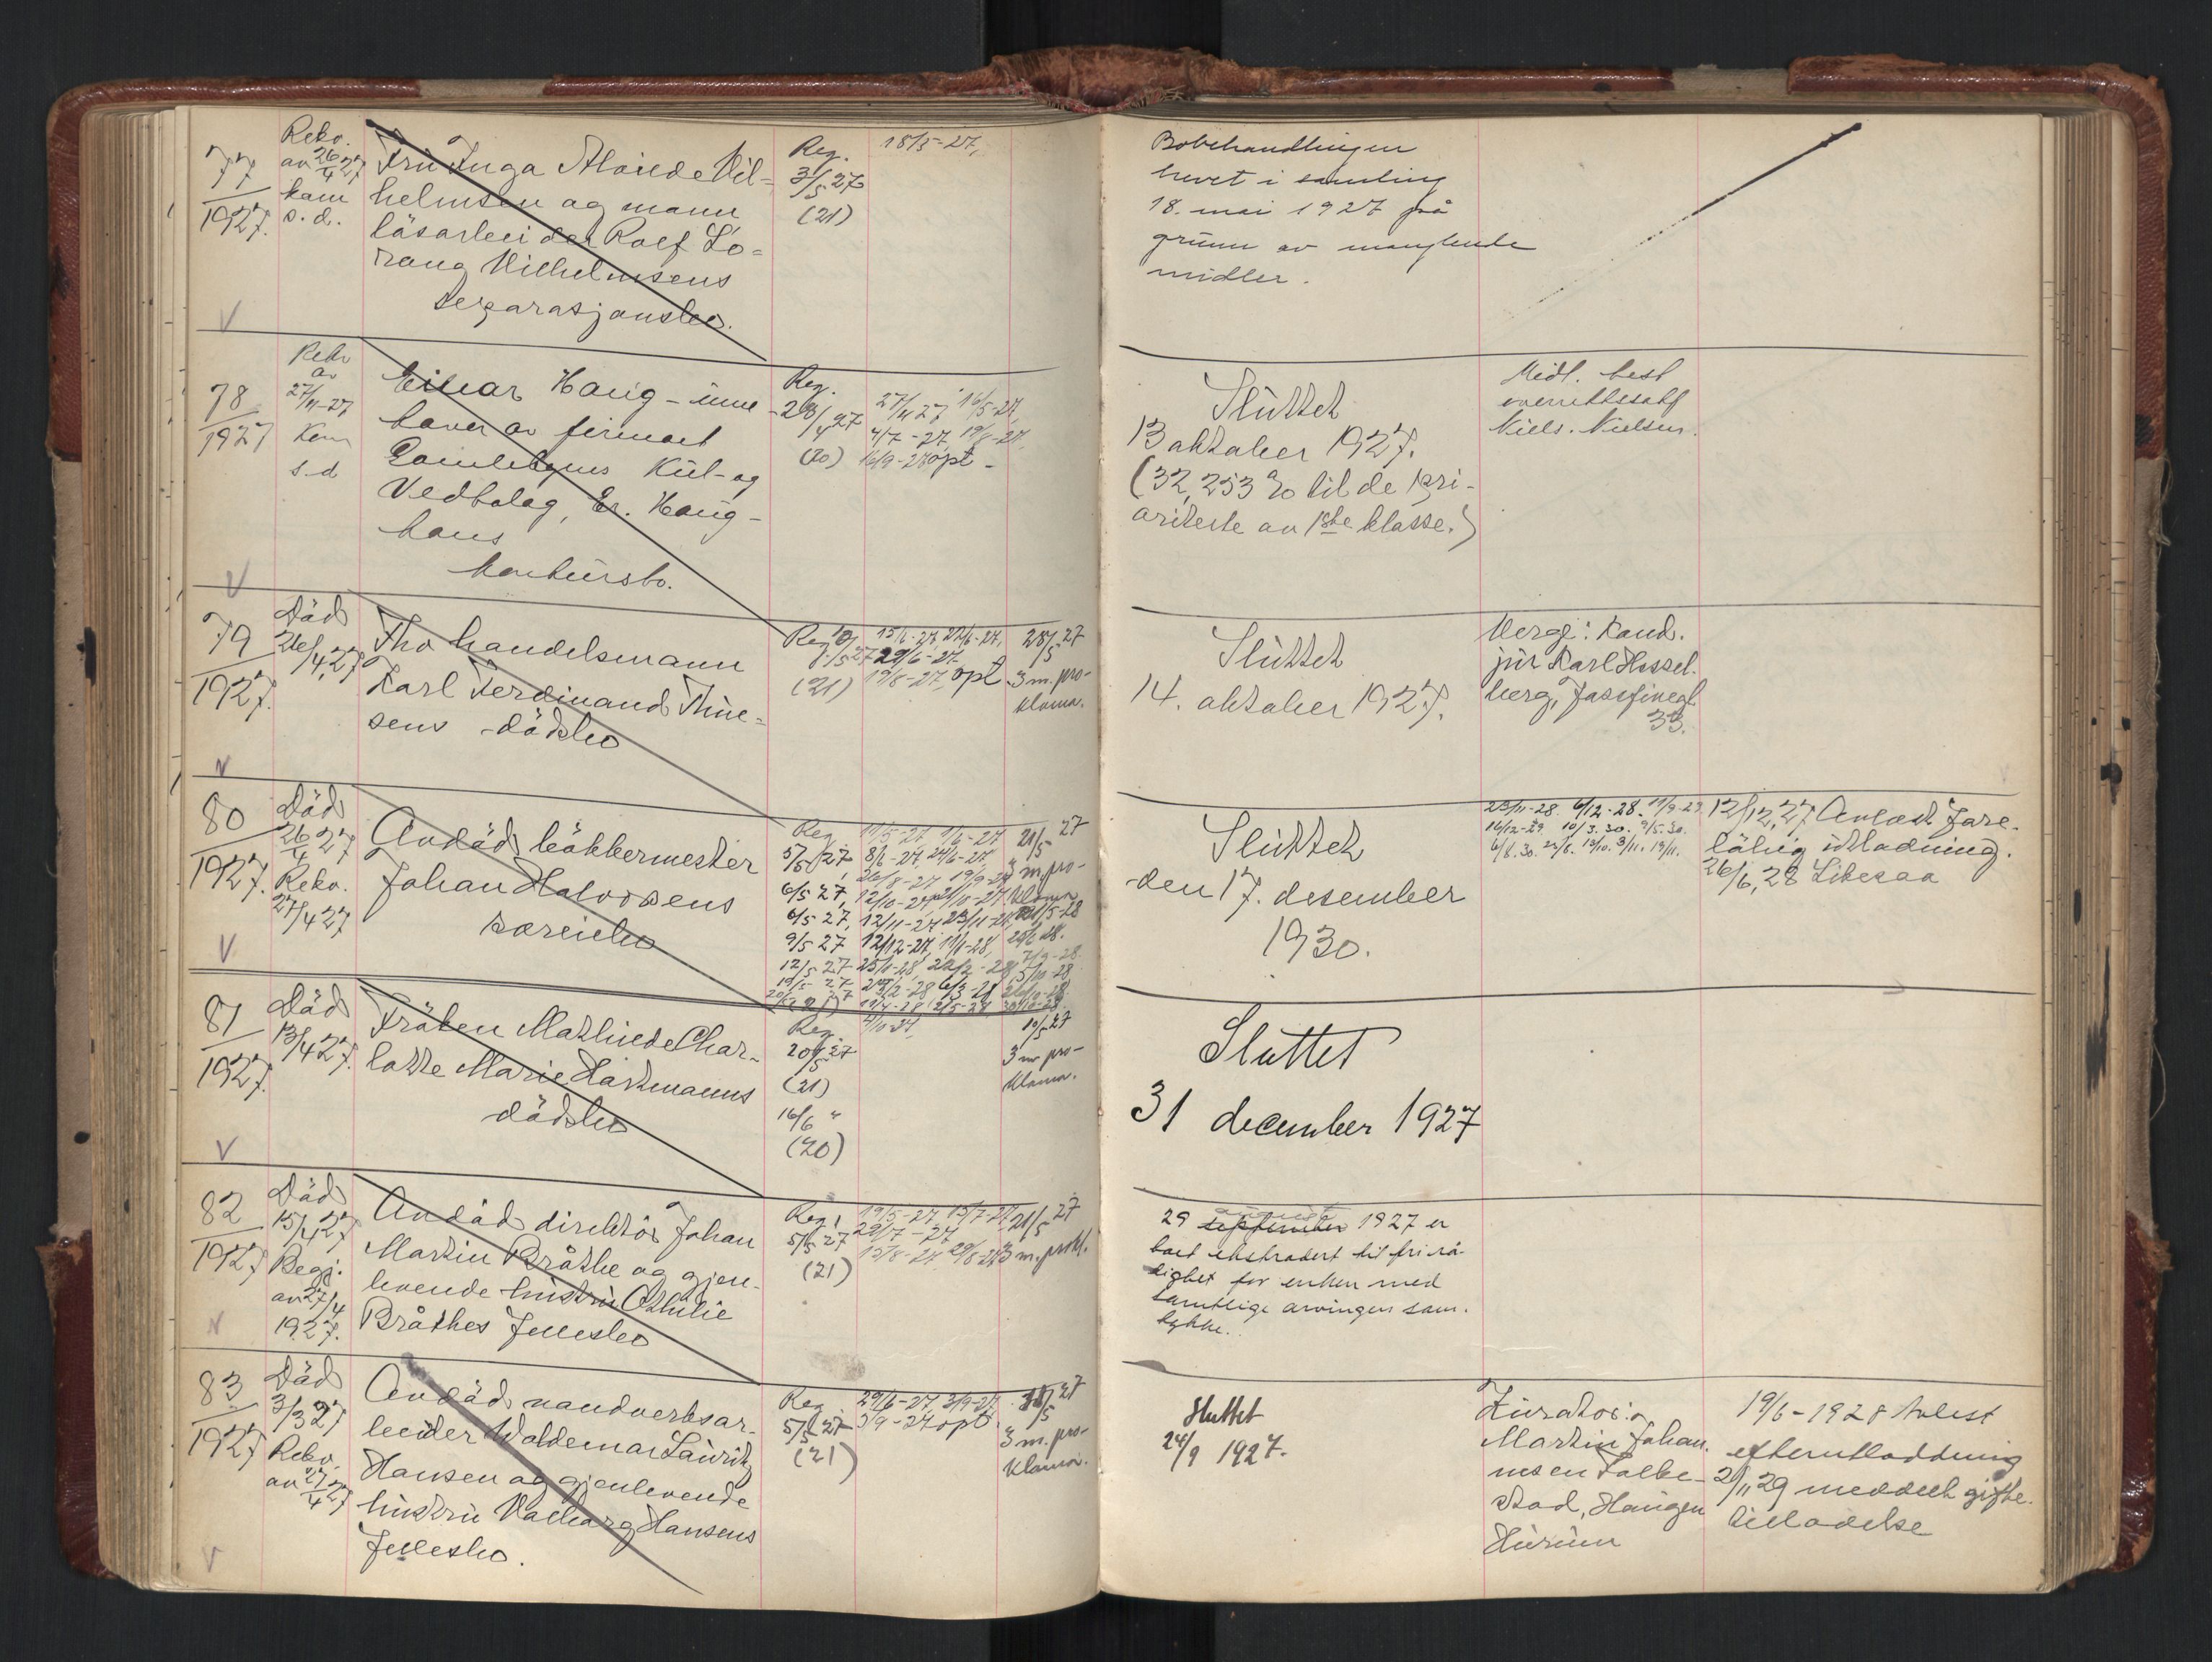 77
1927.
Rekv.
av 26/4 27
kom
s. d.
Fru Inga Alvilde Vil-
helmsen og mann
løsarbeider Rolf Lo-
rang Vilhelmsens
separasjonsbo.
Reg.
3/5 27
(21)
18/5-27,
Bobehandlingen
hevet i samling
18. mai 1927 på
grunn av manglende
midler.
78
1927
Rekv
av
27/4-27
Kom
s-d
Einar Haug - inne-
haver av firmaet
Gamlebyens Kul- og
Vedbolag, Er. Haug -
hans
konkursbo.
Reg.
28/4 27
(20)
27/4 27, 16/5-27,
4/7-27, 19/8-27,
16/9-27 opt -
Sluttet
13 oktober 1927.
(32,253 % til de pri-
oriterte av 1ste klasse.)
Midl. best
overrettssakf
Niels. Nielsen.
79
1927.
Död
26/4 27
Fhv handelsmann
Karl Ferdinand Thue-
sens dödsbo
Reg
(21)
15/6-27, 22/6-27,
29/6-27
19/8-27, opt.
28/5 27
3 m. pro-
klama.
Sluttet
14. oktober 1927.
Verge: Kand.
jur Karl Hessel-
berg, Josefinegt.
33.
80
1927.
Död
26/4 27
Rekv.
27/4 27
Avdöd bökkermester
Johan Halvorsens
særeiebo
Reg.
5/5 27,
6/5 27,
6/5 27,
9/5 27
12/5 27
11/5-27, 1/6-27
8/6-27, 24/6-27,
26/8-27 19/9-27
12/11-27, 23/11-27,
12/12-27, 11/1-28,
25/1-28, 22/2-28
21/5 27
3 m. pro-
klama
Sluttet
den 17. desember
1930.
23/11-28. 6/12-28. 11/9-29.
16/12-29. 10/3.30. 9/5.30.
12/12,27 Avlest fore-
löbig utlodning.
26/6,28 Likesaa
81
1927.
Död
13/4 27.
Fröken Mathilde Char-
lotte Marie Hartmanns
dödsbo
Reg.
20/5 27
(21)
16/6 "
(20)
10/5 27
3 m pro-
klama.
Sluttet
31 december 1927
82
1927
Död
15/4 27
Begj.
av 27/4
1927.
Avdöd direktör Johan
Martin Bråthe og gjen-
levende hustru Othilie
Bråthes fellesbo
Reg.
5/5 27
(21)
19/5-27, 15/7-27,
29/7-27
15/8-27 29/8-27
21/5 27
3 m. prokl.
august
29 september 1927 er
boet ekstradert til fri rå-
dighet for enken med
samtlige arvingers sam-
tykke.
83
1927
Död
3/3 27
Rekv.
av 27/4 27
Avdöd vandverksar-
beider Waldemar Lauritz
Hansen og gjenlevende
hustru Valborg Hansens
fellesbo.
Reg
5/5 27
(21)
29/6-27, 3/9-27,
5/9-27 opt.
3 m. pro-
klama.
Sluttet
24/9 1927.
Kurator:
Martin Johan-
nsen Falke-
stad, Haugen
Hurum
19/6-1928 Avlest
efterutloddning
2/11 29 meddelt gifte-
tilladelse